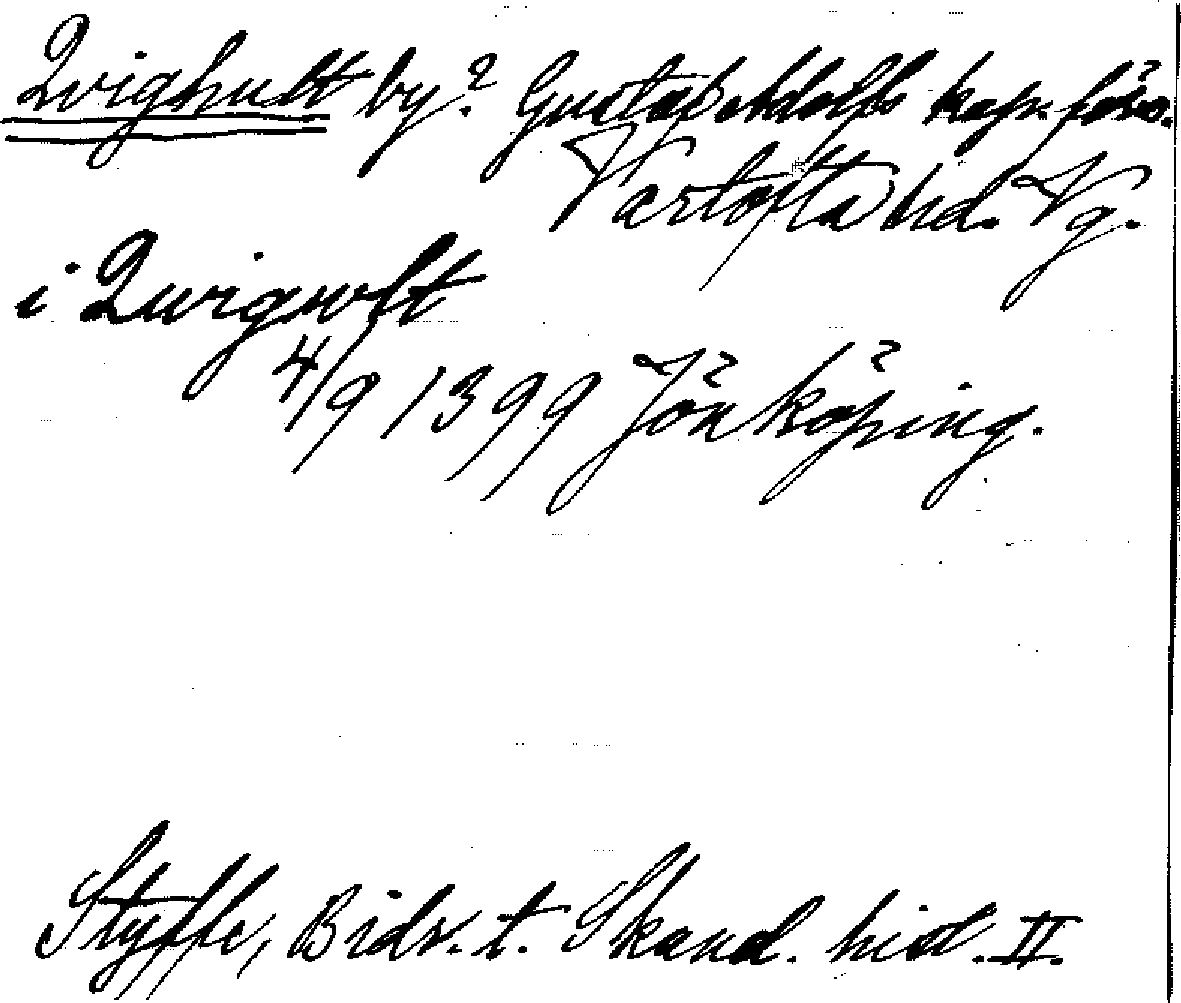 Qvighult by? Gustaf Adolfs kap. förs.
Vartofta hd. Vg.
i Quigwlt
4/9 1399 Jönköping.
Styffe, Bidr. t. Skand. hist. II.